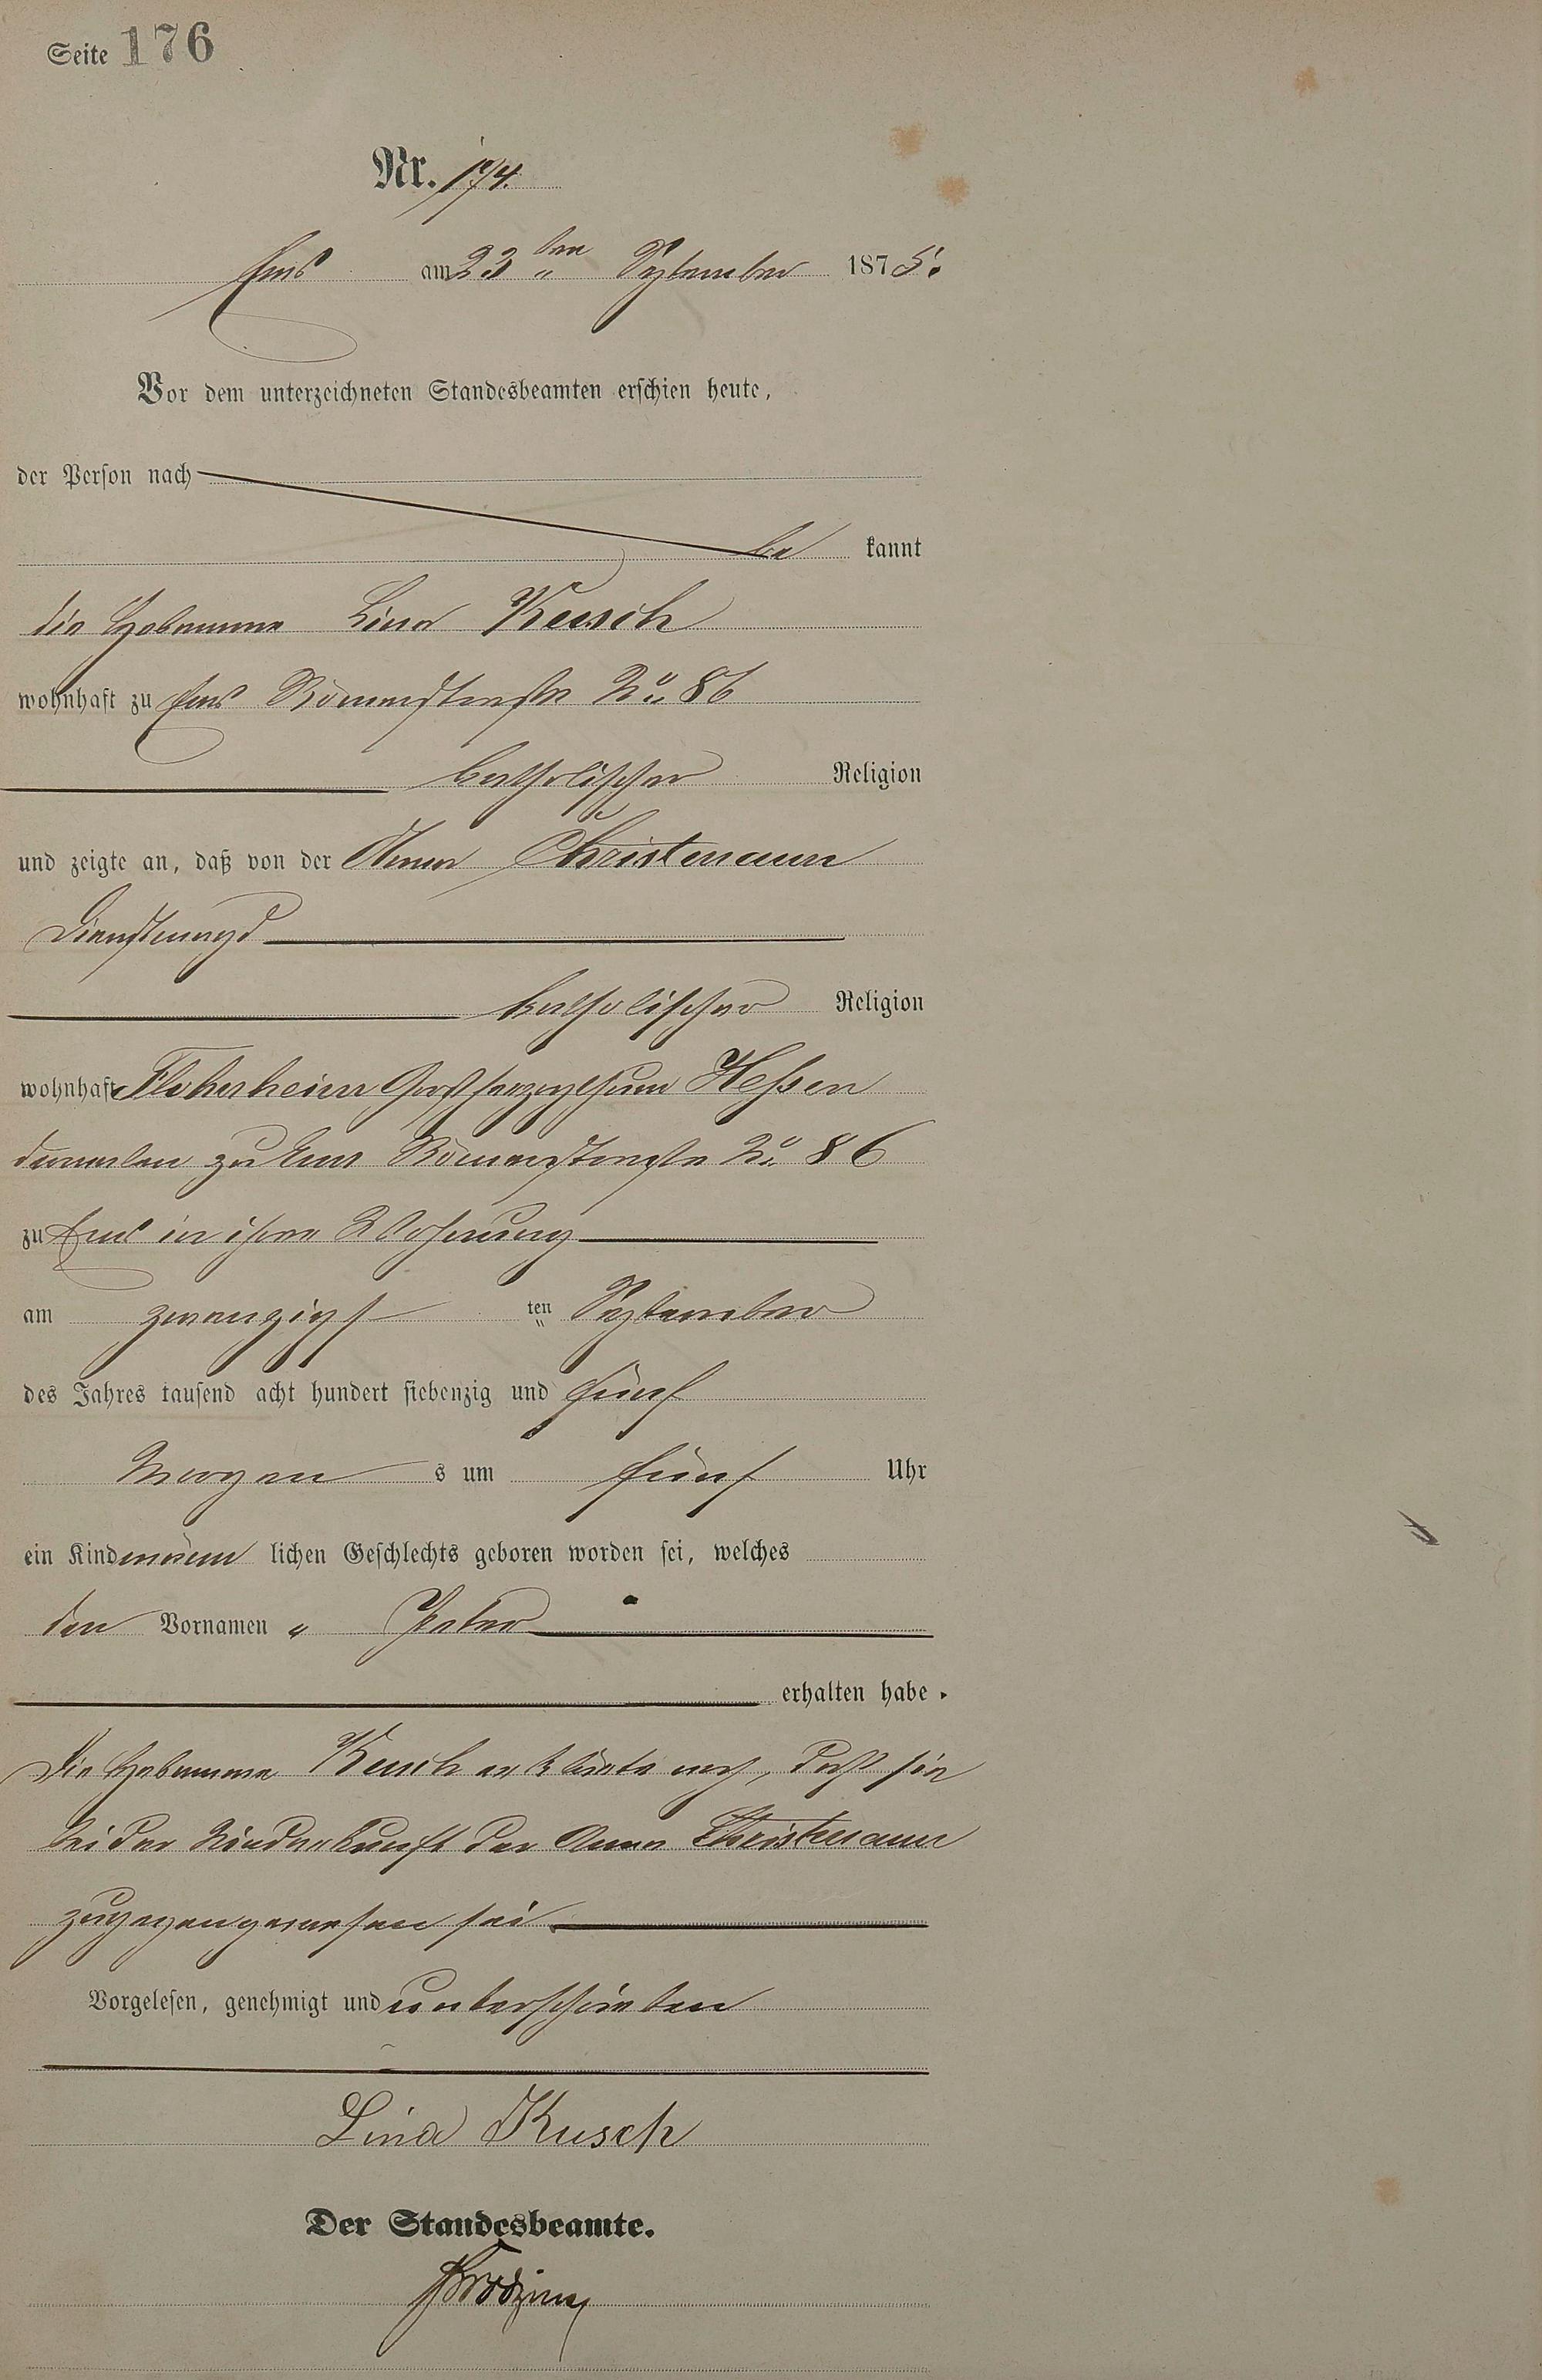 Seite 176
Nr. 174.
Ems am 23ten September 1875.
Vor dem unterzeichneten Standesbeamten erschien heute,
der Person nach
be kannt
die Hebamme Lina Kusch
wohnhaft zu Ems Römerstraße No 86
katholischer Religion
und zeigte an, daß von der Anna Christmann
Dienstmagd
katholischer Religion
wohnhaft Großherzogthum Hessen
dermalen zu Ems Römerstraße No 86
zu Ems in ihrer Wohnung
am zwanzigsten September
des Jahres tausend acht hundert siebenzig und fünf
Morgens um fünf Uhr
ein Kind männlichen Geschlechts geboren worden sei, welches
den Vornamen Peter
erhalten habe.
Die Hebamme Kusch erklärte noch, daß sie
bei der Niederkunft der Anna Christmann
zugegen gewesen sei
Vorgelesen, genehmigt und unterschrieben
Lina Kusch
Der Standesbeamte.